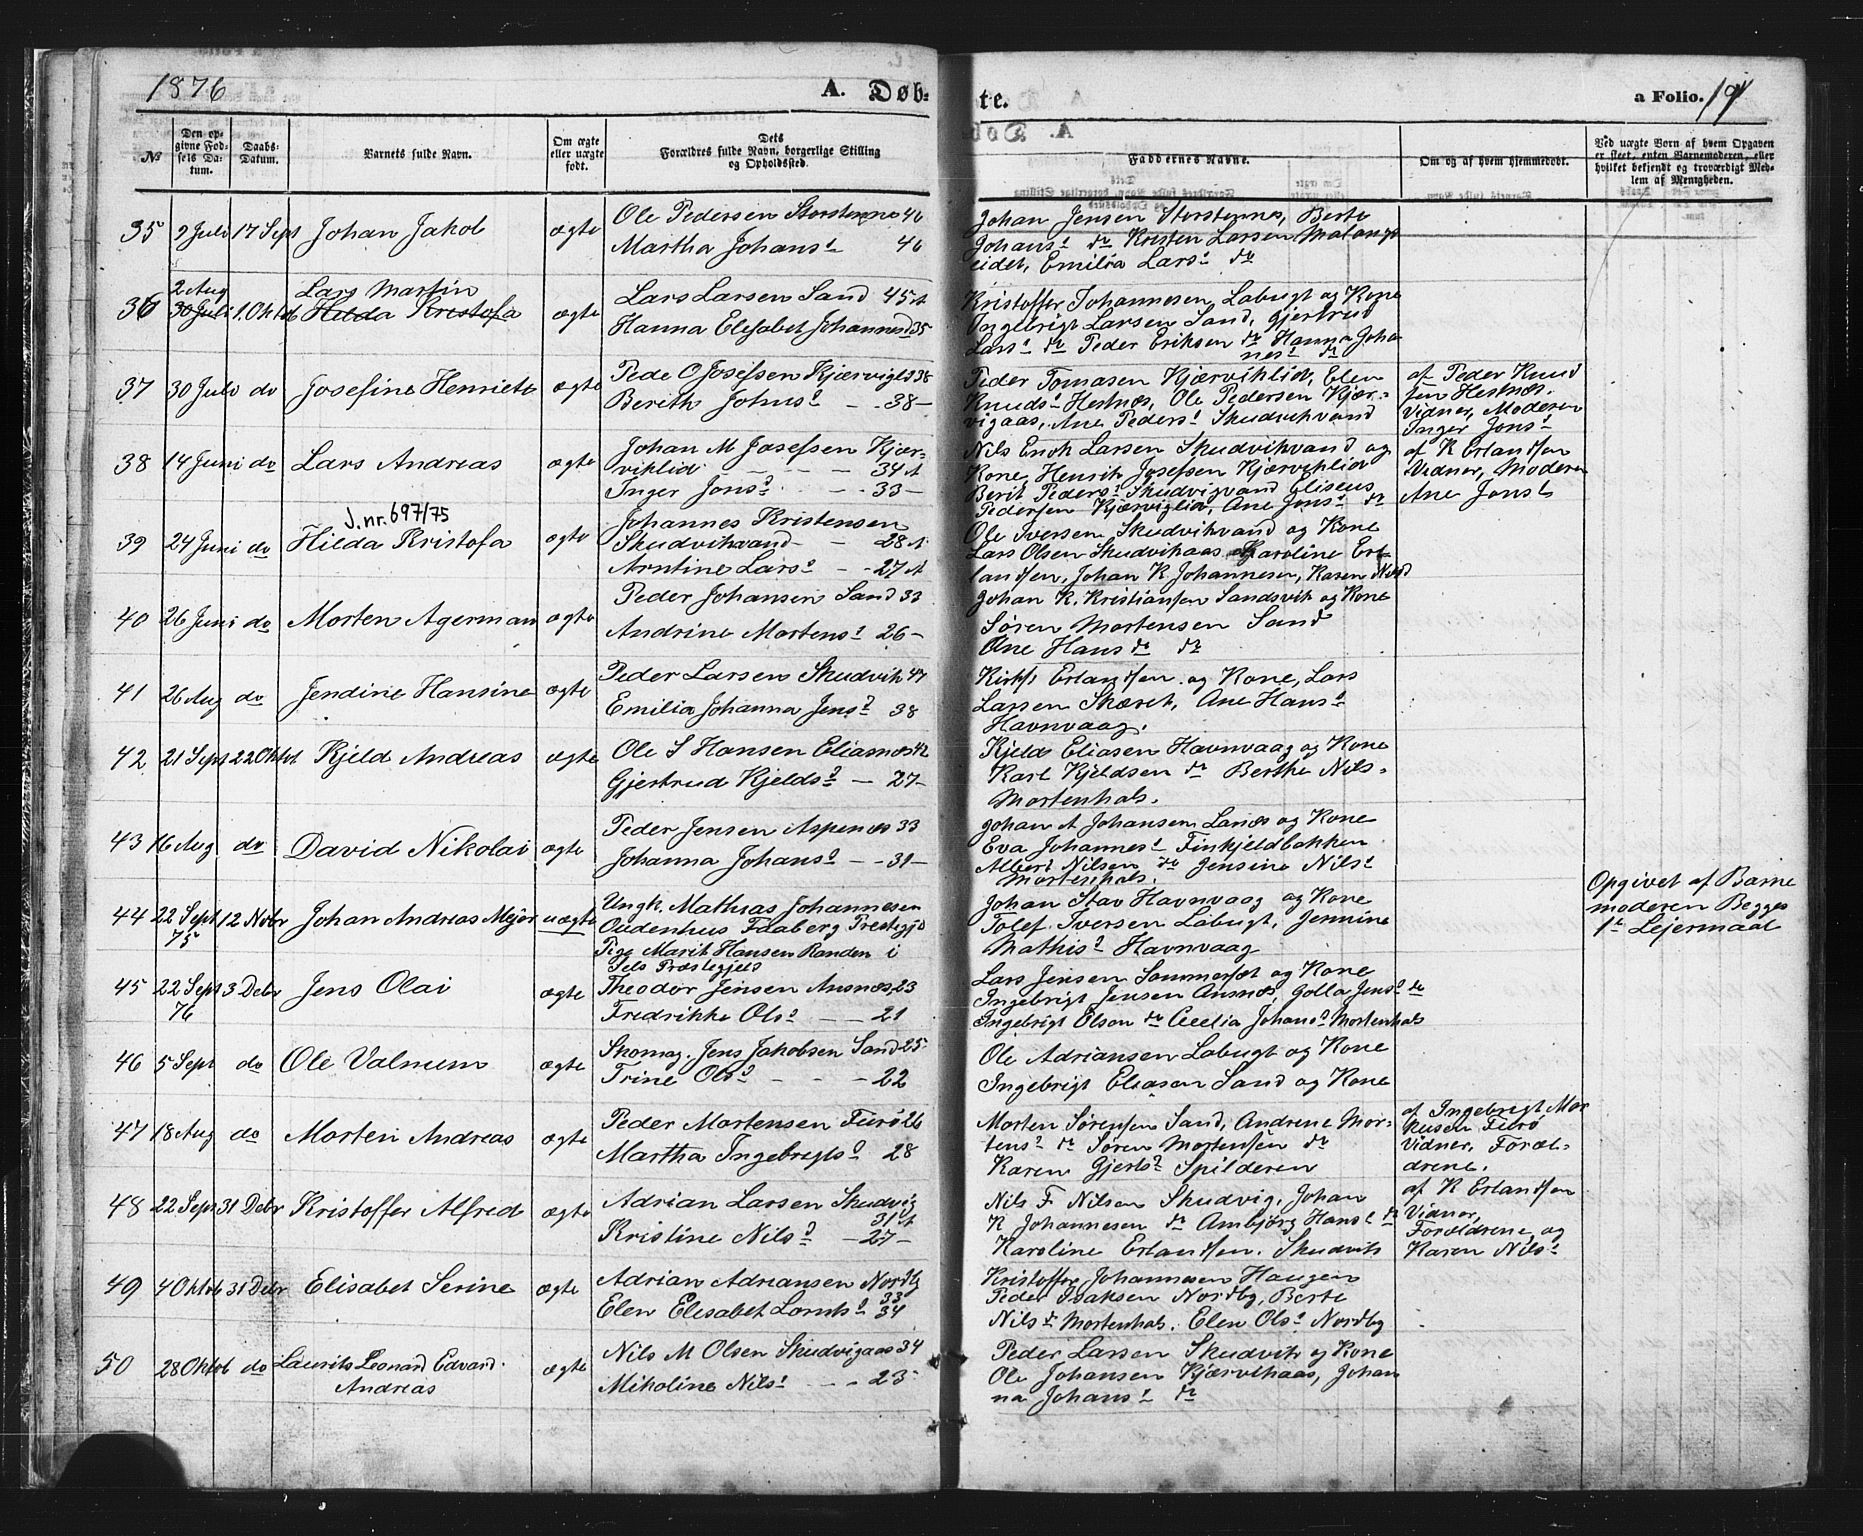 1876
A. Døb-
te.
a Folio. 19
№
Den op-
givne Fød-
sels Da-
tum.
Daabs-
Datum.
Barnets fulde Navn.
Om ægte
eller uægte
født.
Dets
Forældres fulde Navn, borgerlige Stilling
og Opholdssted.
Faddernes Navne.
Om og af hvem hjemmedøbt.
Ved uægte Børn af hvem Opgaven
er skeet, enten Barnemoderen, eller
hvilket bekjendt og troværdigt Med-
lem af Menigheden.
35 9 Juli 17 Sept Johan Jakob ægte
Ole Pedersen Storstennes 46
Martha Johans? 46
Johan Jensen Storstennes, Berte
Johans? do Kristen Larsen Malangs
eidet, Emilia Lars? do
36 2 Aug
30 Juli 1. Oktob
Lars Martin
Hilda Kristofa ægte
Lars Larsen Sand 45
Hanna Elisabet Johannesd 35
Kristoffer Johannesen Løbugt og Kone
Ingebrigt Larsen Sand, Gjertrud
Lars? do Peder Eriksen do Hanna Joha
nes? do
37 30 Juli do Josefine Henriete ægte
Pede O Josefsen Kjærvigld 38
Berith Johns? 38
Peder Tomasen Kjærviklid, Elen
Knuds? Hestnæs, Ole Pedersen Kjær-
vigaas, Ane Peders? Skudvikvand
af Peder Knud
sen Hestnæs.
Vidner, Moderen
Inger Jons?
38 14 Juni do Lars Andreas ægte
Johan M Josefsen Kjær-
viklid 34
Inger Jons? 33
Nils Enok Larsen Skudvikvand og
Kone, Henrik Josefsen Kjærviklid
Berit Peders? Skudvigvand Eliseus
Pedersen Kjærviglid, Ane Jons? do
af K Erlandsen
Vidner, Moderen
Ane Jons?
J.nr. 697/75
39 24 Juni do Hilda Kristofa ægte
Johannes Kristensen
Skudvikvand 28
Arntine Lars? 27
Ole Iversen Skudvikvand og Kone
Lars Olsen Skudvikaas, Karoline Er-
landsen, Johan K Johannesen, Karen Nils
40 26 Juni do Morten Agerman ægte
Peder Johansen Sand 33
Andrine Mortens? 26
Johan K. Kristiansen Sandsvik og Kone
Søren Mortensen Sand
Ane Hans do do
41 26 Aug do Jendine Hansine ægte
Peder Larsen Skudvik 47
Emilia Johanna Jens? 38
Erlandsen og Kone, Lars
Larsen Skæret, Ane Hans?
Havnvaag.
42 21 Sept 22 Oktob Kjeld Andreas ægte
Ole S Hansen Eliasnæs 42
Gjertrud Kjelds? 27
Kjeld Eliasen Havnvaag og Kone
Karl Kjeldsen do Berthe Nils-
Mortenhals.
43 16 Aug do David Nikolai ægte
Peder Jensen Aspenes 33
Johanna Johans? 31
Johan A Johansen Lanæs og Kone
Eva Johannes? Finkjeldbakken
Albert Nilsen do Jensine Nils?
Mortenhals.
44 22 Sept
75 12 Nobr Johan Andreas Mejer uægte
Ungk. Mathias Johannesen
Oudenhus Faaberg Prestegjd
Pige Marit Hansen Randen i
Prestegjeld
Johan Stav Havnvaag og Kone
Tolef Iversen Løbugt, Jermine
Mathis? Havnvaag
Opgivet af Barne
moderen Begges
1te Lejermaal
45 22 Sept
76 3 Debr Jens Olai ægte
Theodor Jensen Ansnæs 23
Fredrikke Ols? 21
Lars Jensen Sommersæt og Kone
Ingebrigt Jensen Ansnæs, Golla Jens? do
Ingebrigt Olson do Cecelia Johans? Mortenhals
46 5 Sept do Ole Valnum ægte
Skomag. Jens Jakobsen Sand 25
Trine Ols? 22
Ole Adriansen Løbugt og Kone
Ingebrigt Eliasen Sand og Kone
47 18 Aug do Morten Andreas ægte
Peder Mortensen Furö 26
Martha Ingebrigts? 28
Morten Sørensen Sand, Andrene Mor-
tens? do Søren Mortensen do
Karen Gjerts? Spilderen
af Ingebrigt Mar
kusen Furö
Vidner, Foræl-
drene.
48 22 Sept 31 Debr Kristoffer Alfred ægte
Adrian Larsen Skudvig
31
Kristine Nils? 27
Nils F Nilsen Skudvig, Johan
K Johannesen do Ambjörg Hans? do
Karoline Erlandsen. Skudvik
af K Erlandsen
Vidner,
Forældrene og
Karen Nils?
49 4 Oktob 31 Debr Elisabet Serine ægte
Adrian Adriansen Nordby
33
Elen Elesabet 34
Kristoffer Johannesen Haugen
Peder Isaksen Nordby, Berte
Nils do Mortenhals. Elen Ols? Nordby
50 28 Oktob do Laurits Leonard Edvard
Andreas ægte
Nils M Olsen Skudvigaas 34
Mikoline Nils? 23
Peder Larsen Skudvik og Kone
Ole Johansen Kjærvikaas, Johan
na Johans? do